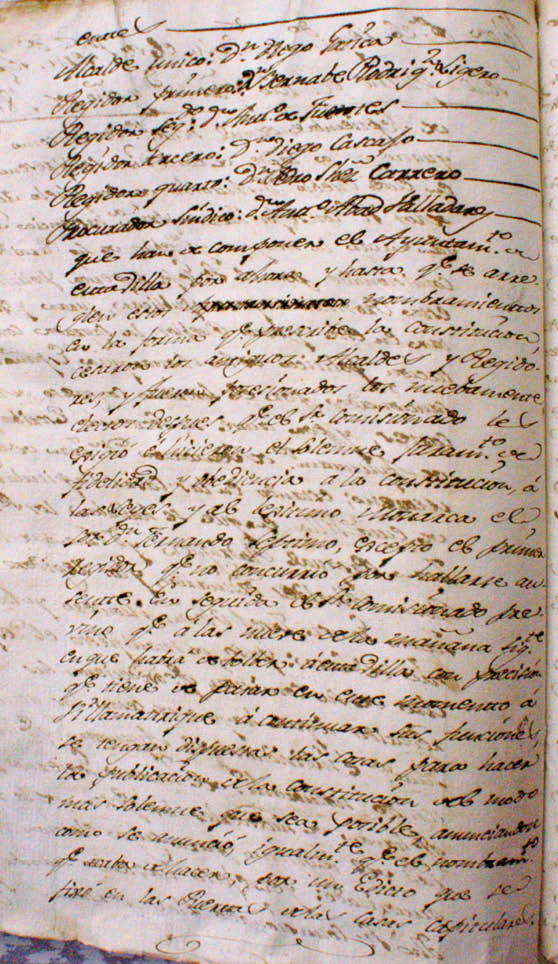 entes
Alcalde unico: Dn. Diego Garica
Regidor primero: Dn. Bernabe Rodrig.z Ligero
Regidor seg.do dn. Ant.o de Fuentes
Regidor tercero: Dn. Diego Cascajo
Regidor quarto: Dn. Pedro Carrero
Procurador Sindico: dn. Ant.o Abad Valladares
que han de componer el Ayuntam.to de
esta Villa por ahora y hasta q.e se arre-
glen estos nombramientos
en la forma q.e prescribe la constitucion
cesaron los antiguos Alcaldes y Regido-
res, y fueron posesionados los nuebamente
electos despues q.e el Sr. comisionado les
exigió é hicieron el solemne juram.to de
fidelidad y obediencia a la constitucion, á
las Leyes, y al legitimo Monarca el
Sor. Dn. Fernando Septimo, escepto el primer
Regidor q.e no concurrio por hallarse au-
sente. En seguida el Sr. Comisionado pre-
vino q.e a las nueve de la mañana sig.te
en que habra de bolber á esta villa con precision
q.e tiene de pasar en este momento á
Villamanrique á continuar sus funciones,
se tengan dispuestas las cosas para hacer
la publicacion de la constitucion del modo
mas solemne que sea posible, anunciandose
como se anunció, igualm.te q.e el nombram.to
q.e acaba de hacer, por un Edicto que se
fixe en las Puertas de las casas capitulares.